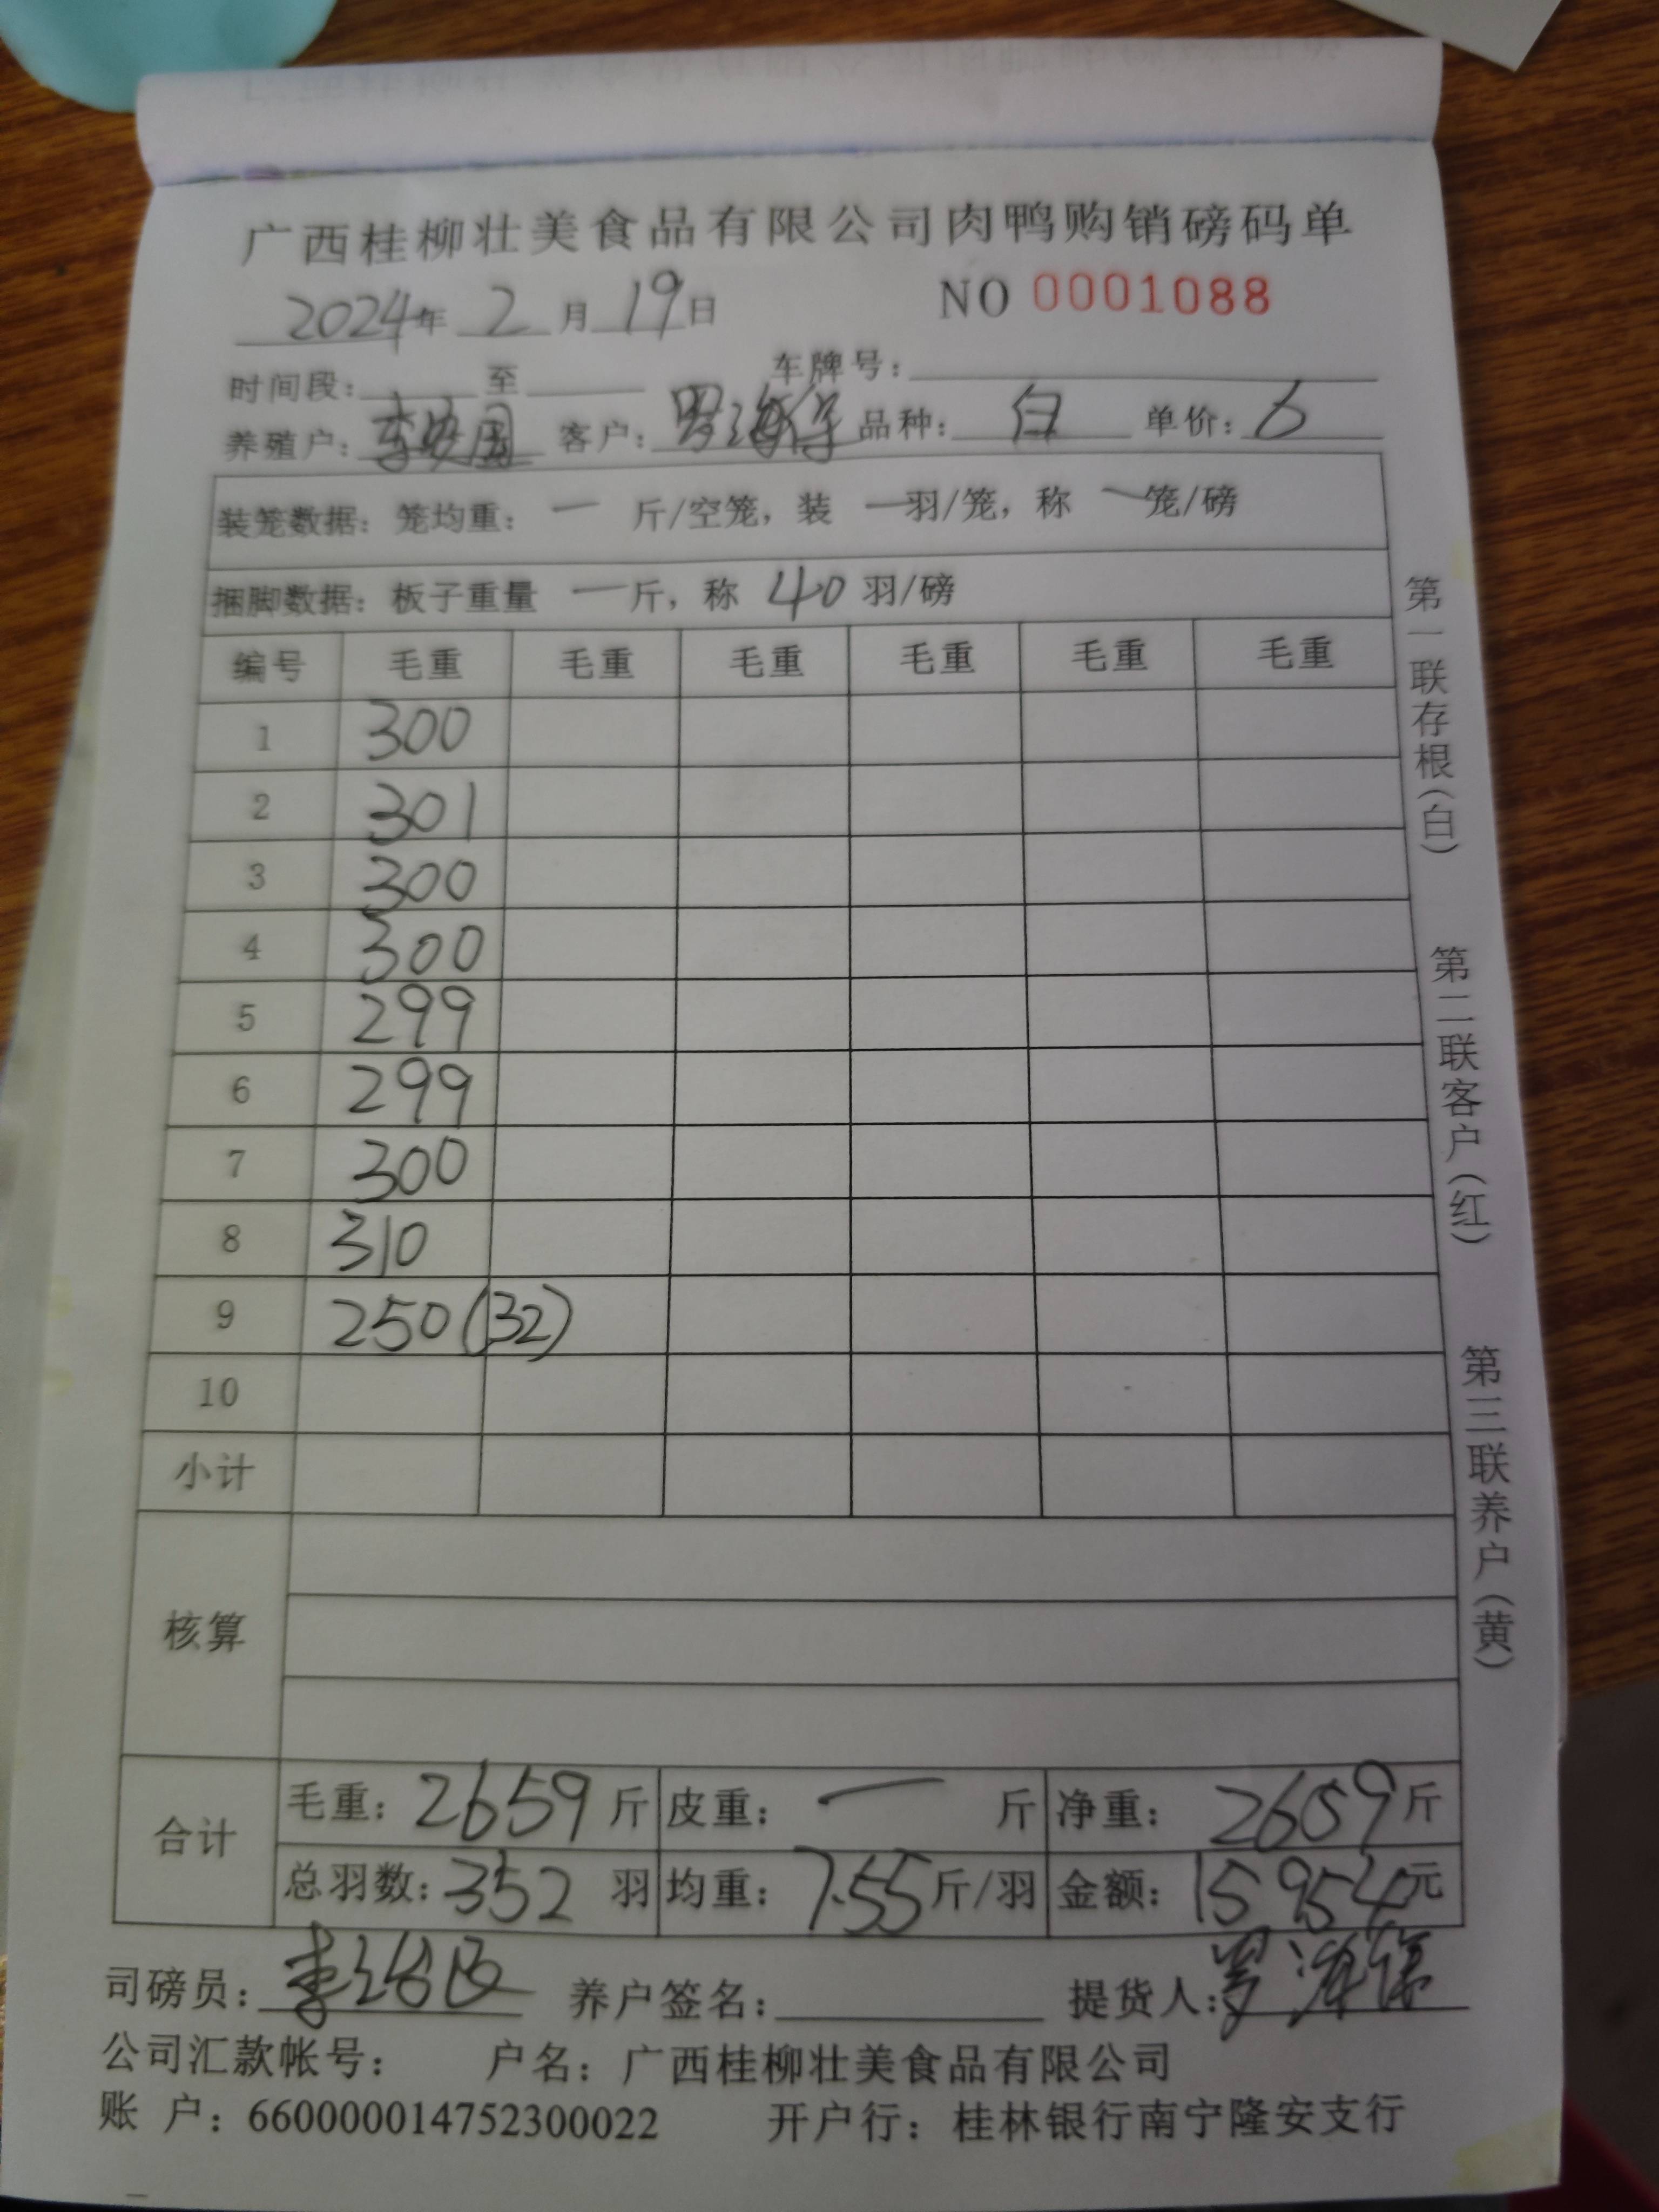 广西桂柳壮美食品有限公司肉鸭购销磅码单
2024年 2 月 19日 NO 0001088
时间段: 至 车牌号:
养殖户: 李安国 客户: 罗海 品种: 白 单价: 6
装笼数据: 笼均重: 一 斤/空笼, 装 一羽/笼, 称 一笼/磅
捆脚数据: 板子重量 一斤, 称 40 羽/磅
编号 毛重 毛重 毛重 毛重 毛重 毛重
1 300
2 301
3 300
4 300
5 299
6 299
7 300
8 310
9 250(32)
10
小计
核算
合计
毛重: 2659 斤 皮重: 一 斤 净重: 2659斤
总羽数: 352 羽 均重: 7.55斤/羽 金额: 15954元
司磅员: 李 养户签名: 提货人: 罗海
公司汇款帐号: 户名: 广西桂柳壮美食品有限公司
账 户: 660000014752300022 开户行: 桂林银行南宁隆安支行
第一联存根(白)
第二联客户(红)
第三联养户(黄)